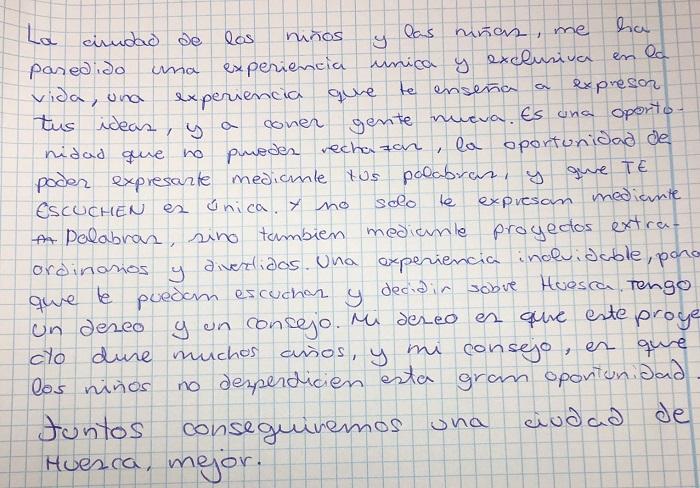 La ciudad de los niños y las niñas, me ha
paredido una experiencia unica y exclusiva en la
vida, una experiencia que te enseña a expresar
tus ideas, y a coner gente nueva. Es una oporto-
nidad que no puedes rechazar, la oportunidad de
poder expresarte mediante tus palabras, y que TE
ESCUCHEN es única. Y no solo te expresan mediante
Palabras, sino tambien mediante proyectos extra-
ordinarios y divertidos. Una experiencia inolvidable, para
que te puedan escuchar y decidir sobre Huesca. Tengo
un deseo y un consejo. Mi deseo es que este proye
cto dure muchos años, y mi consejo, es que
los niños no desperdicien esta gran oportunidad.
Juntos conseguiremos una ciudad de
Huesca, mejor.